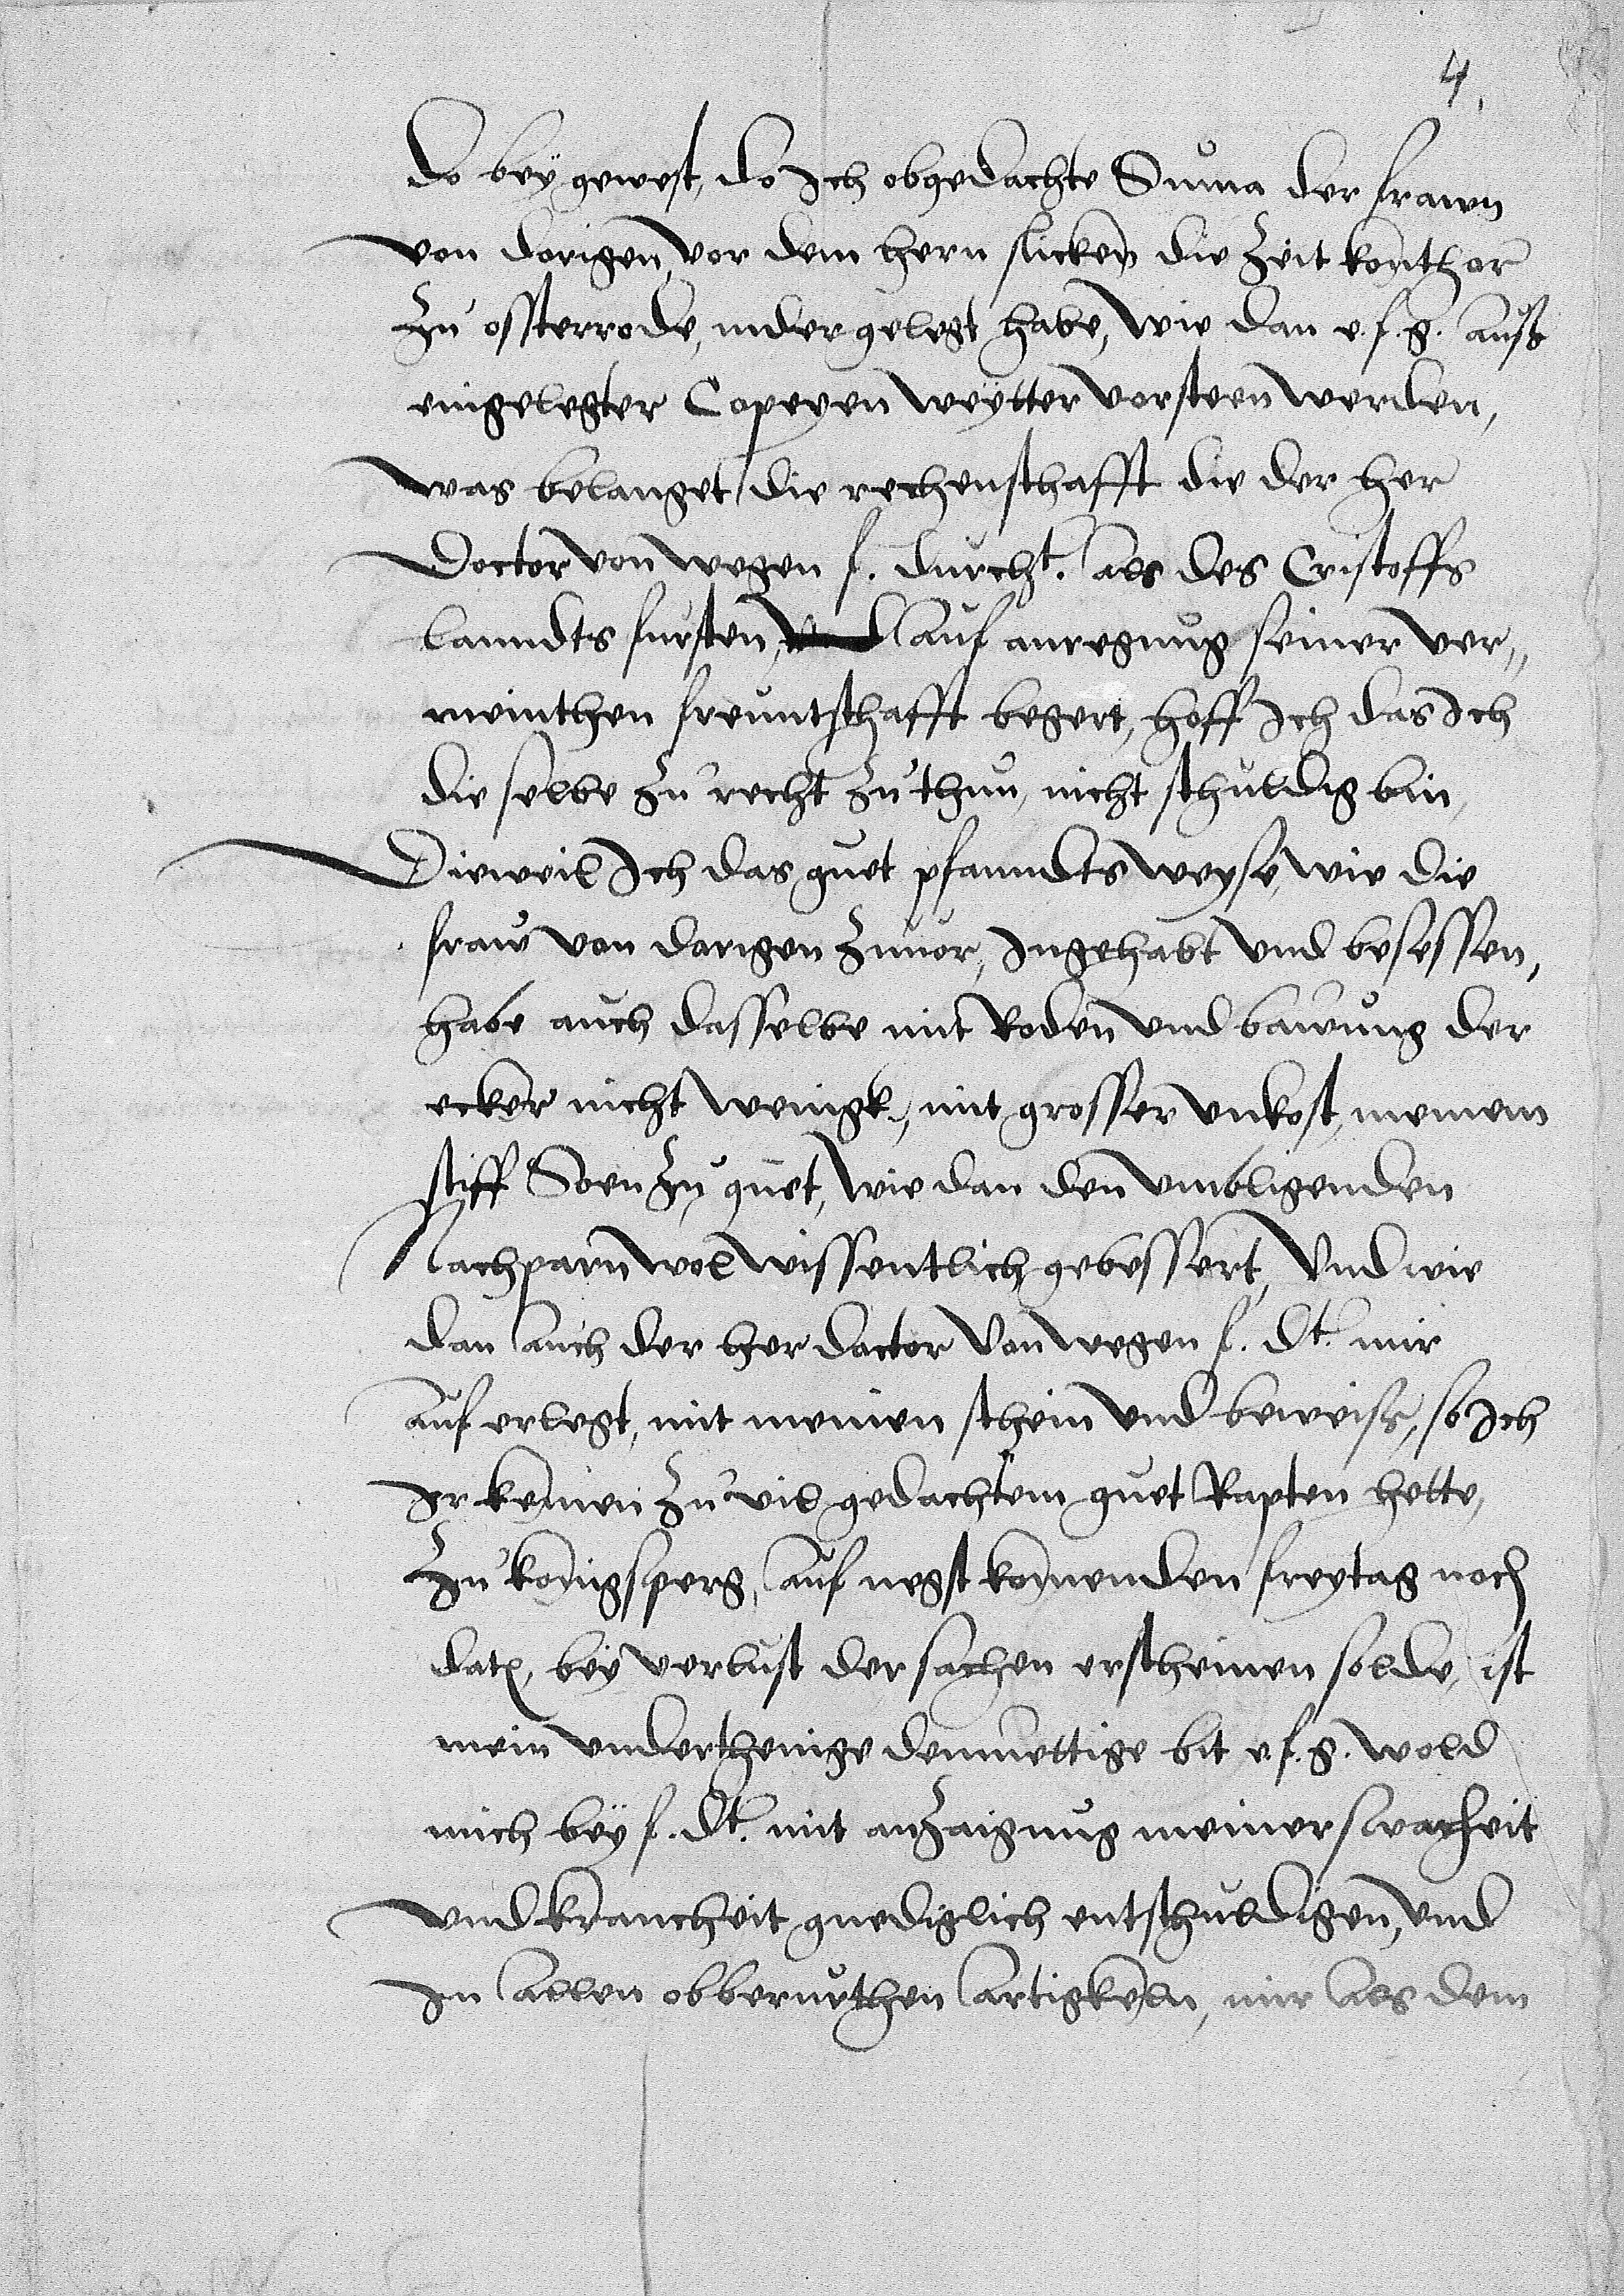 4.
do bey gewest, do Ich obgedachte Suma der frawen
von dorigen, vor dem hern flicken die Zeit konthor
Zu osterrode, nider gelegt habe, wie dan e. f. g. auß
eingelegter Copeyen weytter vorsteen werden,
was belanget die rechenschafft die der her
Doctor von wegen f. durcht. als des Cristoffs
lanndts fursten, auf anregung seiner ver„
meinthen freuntschafft begert, hoff Ich das Ich
die selbe Zu recht Zu thun, nicht schuldig bin,
Dieweil Ich das guet pfanndts weyse, wie die
fraw von dorigen Zuuor, Ingehabt vnd besessen,
habe auch dasselbe mit Roden vnd bawung der
ecker nicht wenigk, mit grosser vnkost, meinem
stiff Soen Zu guet, wie dan den vmbligenden
Nachparn wol wissentlich gebessert, Vnd wie
dan auch der her doctor von wegen f. dt. mir
auf erlegt, mit meinen schein vnd beweiß, so Ich
Ir keinen Zu uil gedachtem guet Rapten hette,
Zu konigsperg, auf negst komenden freytag noch
dato, bey verlust der sachen erscheinen solde, ist
mein vnderthenige demuettige bit e. f. g. wold
mich bey f. dt. mit anZaigung meiner swacheit
vnd kranckheit gnediglich entschuldigen, vnd
In allen obberurthen artigkeln, mir als dem